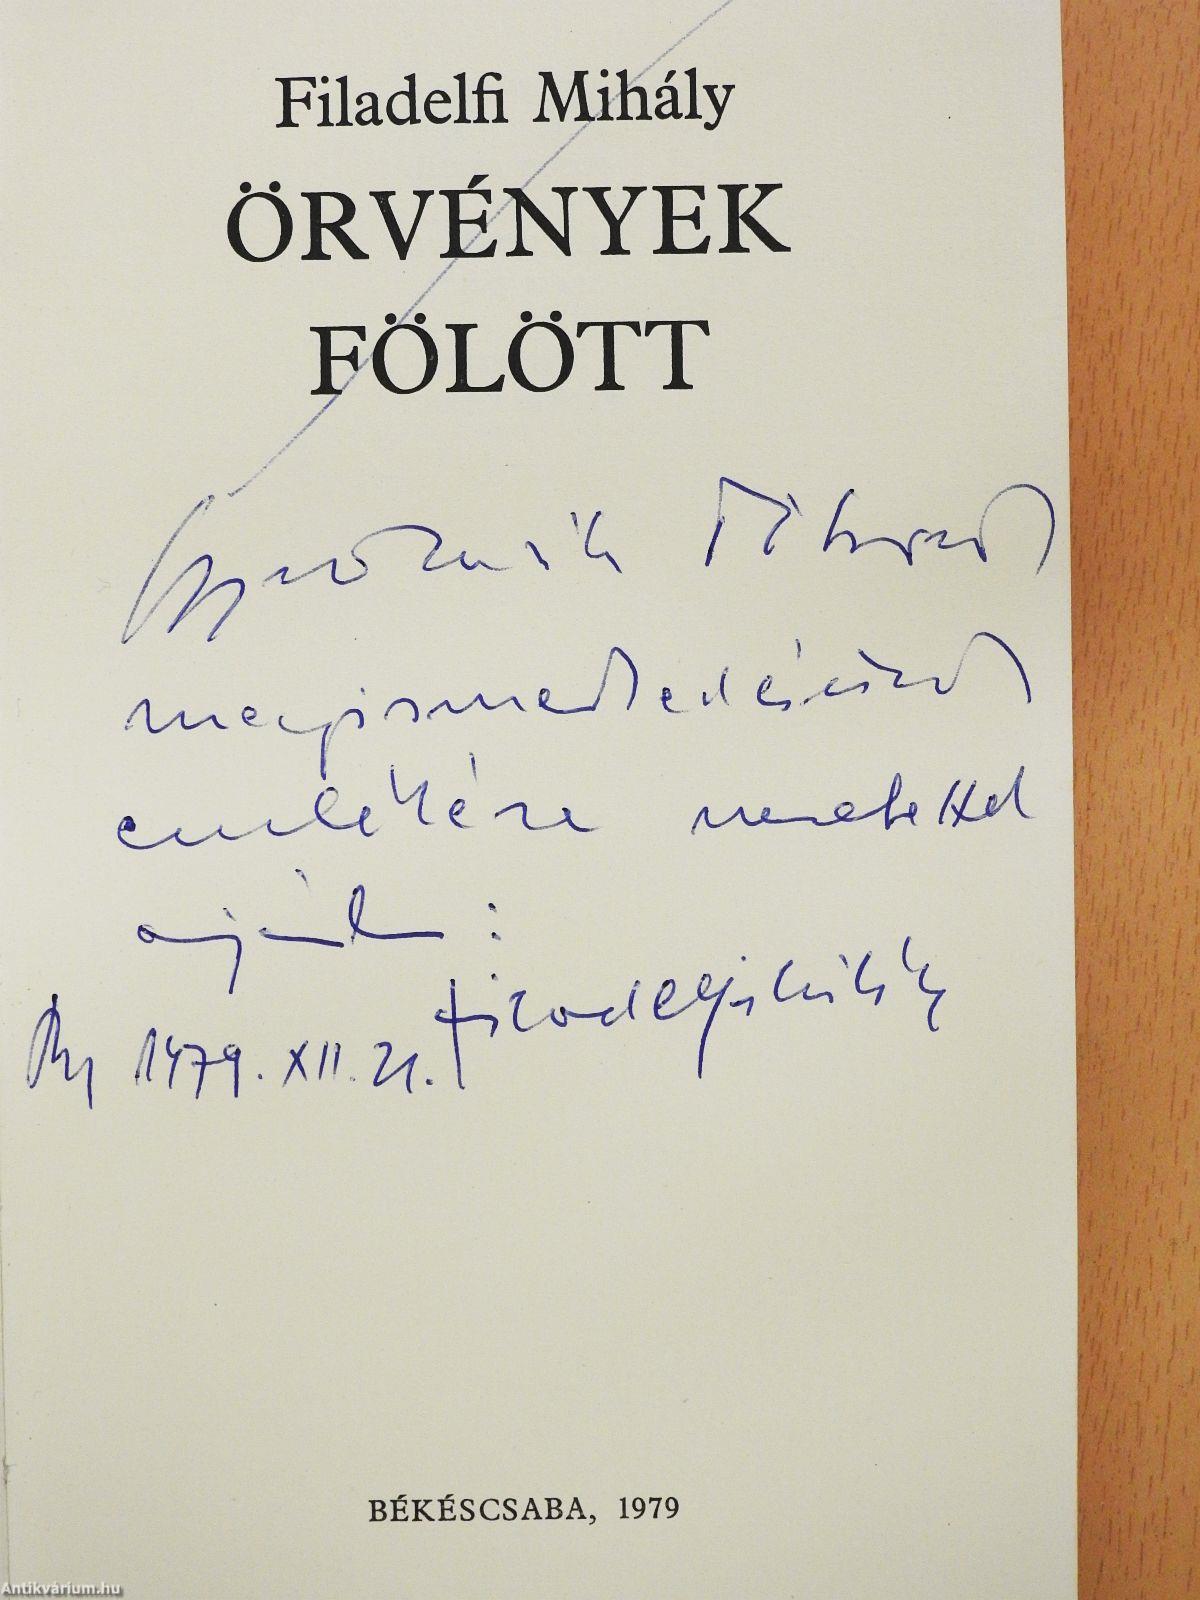 Filadelfi Mihály
ÖRVÉNYEK
FÖLÖTT
Tibornak
megismerkedésünk
emlékére szeretettel
ajánlom:
1979. XII. 21. Filadelfi Mihály
BÉKÉSCSABA, 1979
Antikvárium.hu